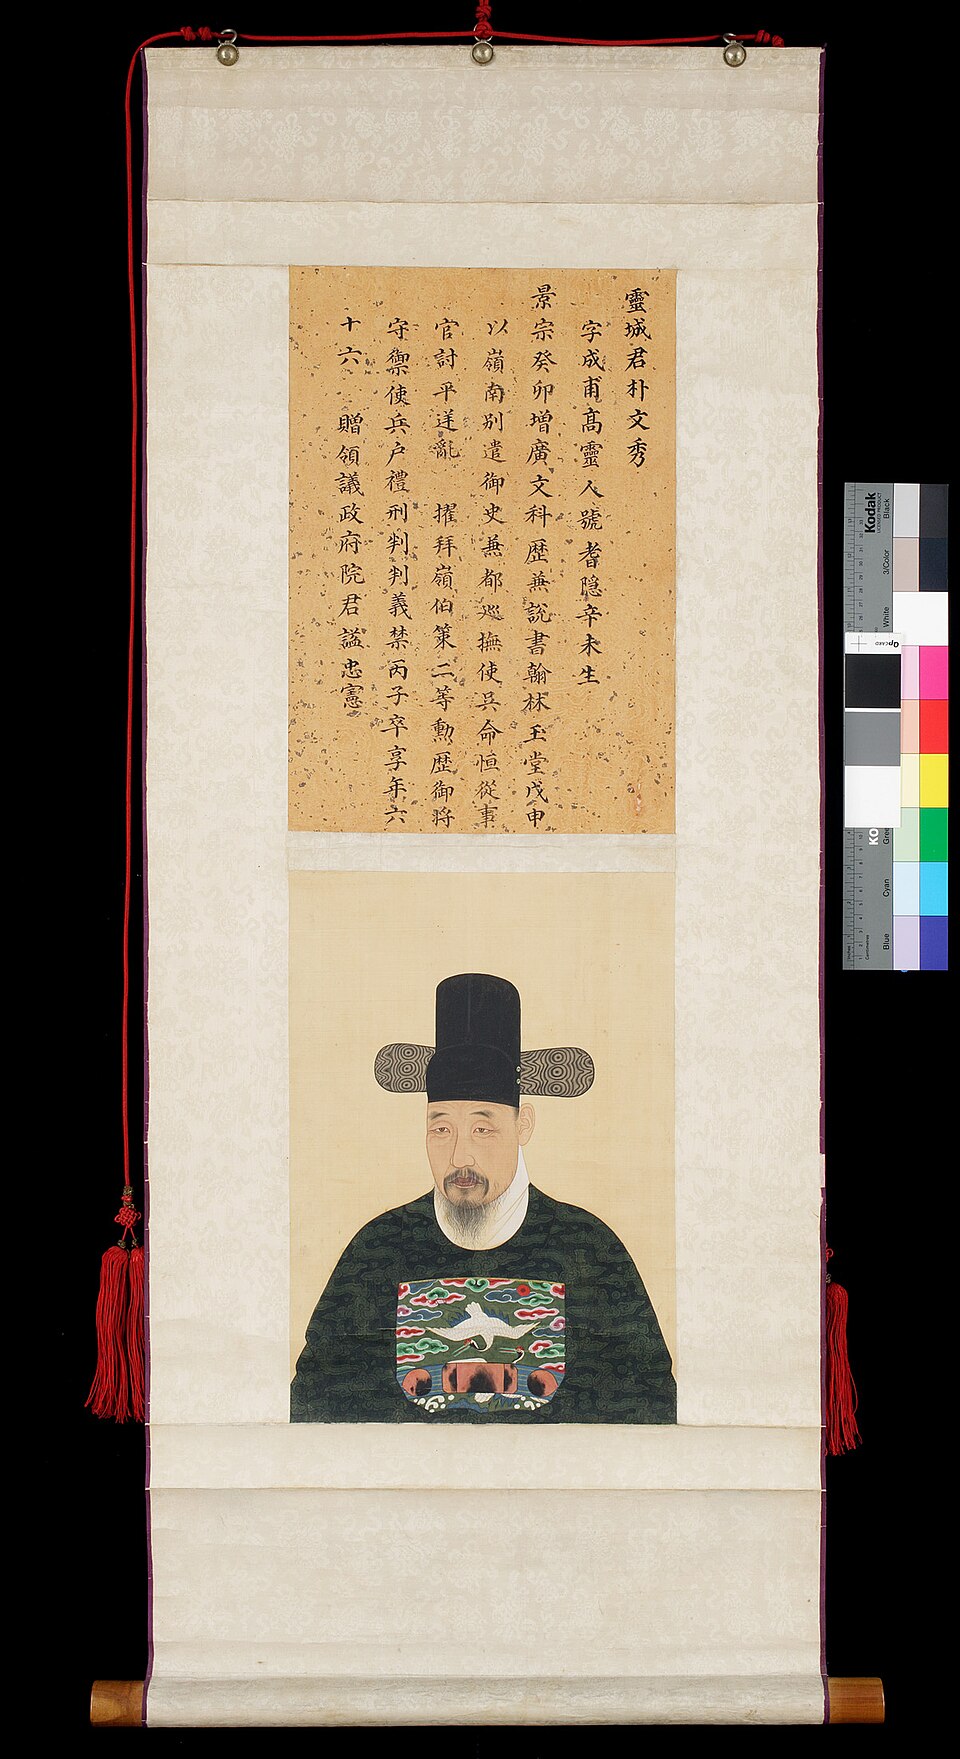 靈城君朴文秀
字成甫高靈人號耆隠辛未生
景宗癸卯增廣文科歴兼説書翰林玉堂戊申
以嶺南别遣御史兼都巡撫使吳命恒從事
官討平逆亂 擢拜嶺伯策二等勳歴御将
守禦使兵户禮刑判判義禁丙子卒享年六
十六 贈領議政府院君謚忠憲
Kodak
LICENSED PRODUCT
Black
3/Color
White
QPCARD
KO
Green
Cyan
Blue
Centimetres